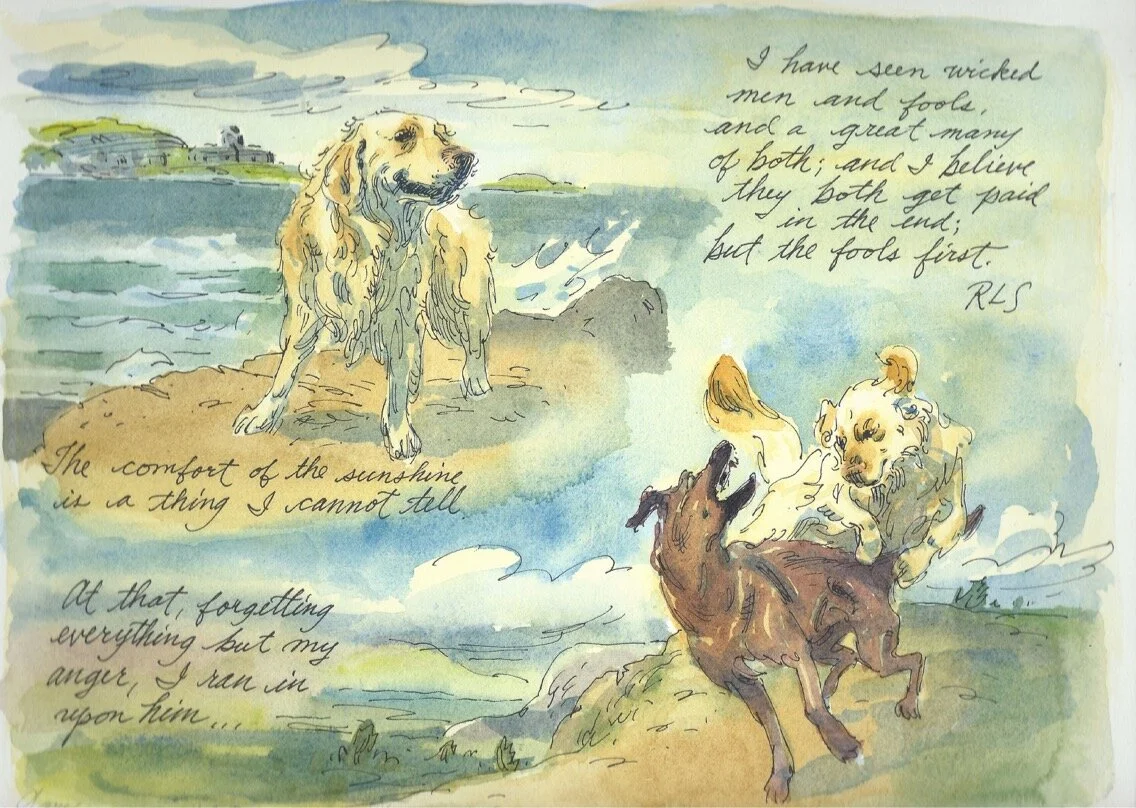 I have seen wicked
men and fools,
and a great many
of both; and I believe
they both get paid
in the end;
but the fools first.
RLS
The comfort of the sunshine
is a thing I cannot tell
At that, forgetting
everything but my
anger, I ran in
upon him...